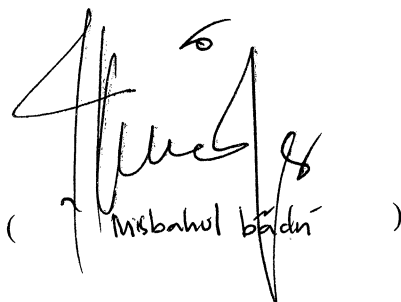 ( Misbahul badri )